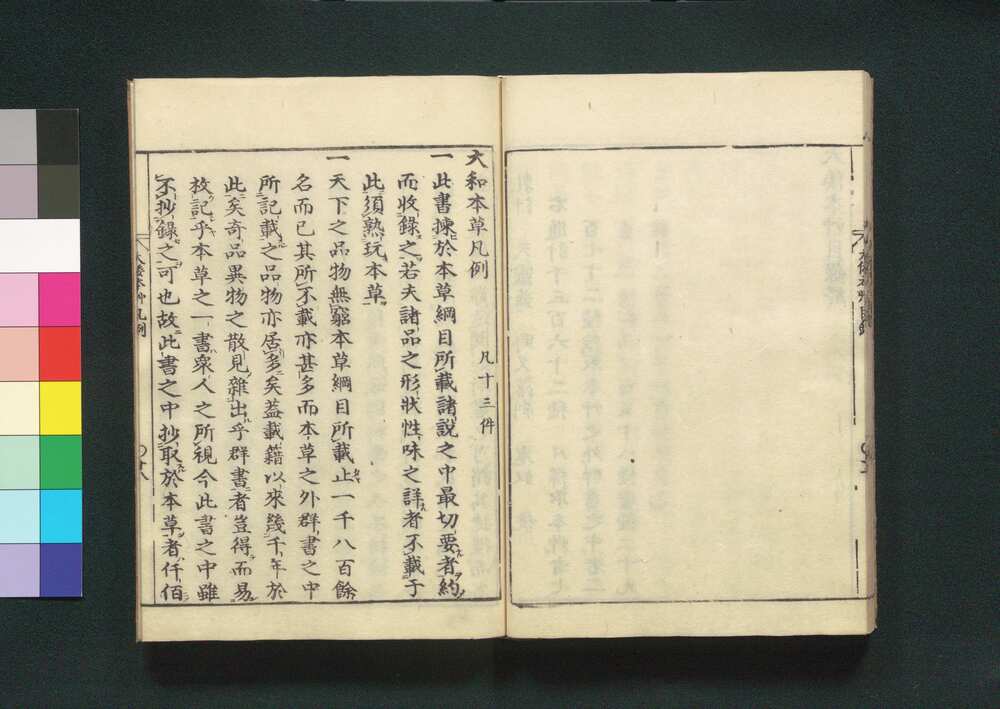 大和本草凡例
凡十三件
一此書揀於本草綱目所載諸説之中最切要者約
而收錄之若夫諸品之形狀性味之詳者不載于
此須熟玩本草
一天下之品物無窮本草綱目所載止一千八百餘
名而已其所不載亦甚多而本草之外群書之中
所記載之品物亦居多矣蓋載籍以來幾千年於
此矣奇品異物之散見雜出乎群書者豈得而易
枚記乎本草之一書衆人之所視今此書之中雖
不抄錄之可也故此書之中抄取於本草者仟佰
大倭本艸凡例